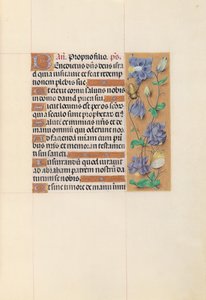 Añ. Proprio filio. ps.
Benedictus dñs deus isra
el quia uisitauit et fecit redemp
tionem plebis sue
Et erexit cornu salutis nobis
in domo dauid pueri sui
Sicut locutus est per os sctõ
qui a seculo sunt prophetarũ eiꝰ
Salutẽ ex inimicis nr̃is et de
manu omniũ qui oderunt nos
Ad faciendã miam̃ cum pa
tribus nr̃is et memorari testamen
ti sui sancti
Iusiurandũ quod iurauit
ad abraham patrem nostrũ da
turum se nobis
Ut sine timore de manu inimi